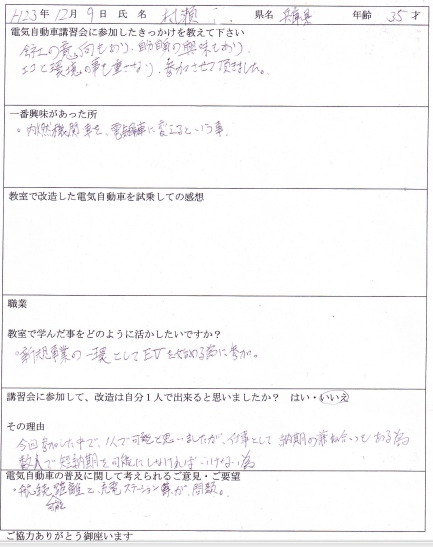 H23年 12月 9日 氏名 札瀬 県名 兵庫県 年齢 35才
電気自動車講習会に参加したきっかけを教えて下さい
会社の意向もあり、自動車の興味もあり、
エコと環境の事も重なり、参加させて頂きました。
一番興味があった所
・内燃機関車を、電気自動車に変えるという事。
教室で改造した電気自動車を試乗しての感想
職業
教室で学んだ事をどのように活かしたいですか？
・新規事業の一環としてEVを始める為に参加。
講習会に参加して、改造は自分１人で出来ると思いましたか？ はい・いいえ
その理由
今回参加した中で、1人で可能と思いましたが、仕事として納期の兼ね合いもある為
数人で短納期を可能にしなければいけない為
電気自動車の普及に関して考えられるご意見・ご要望
・航続距離と、充電ステーション等が、問題。
ご協力ありがとう御座います